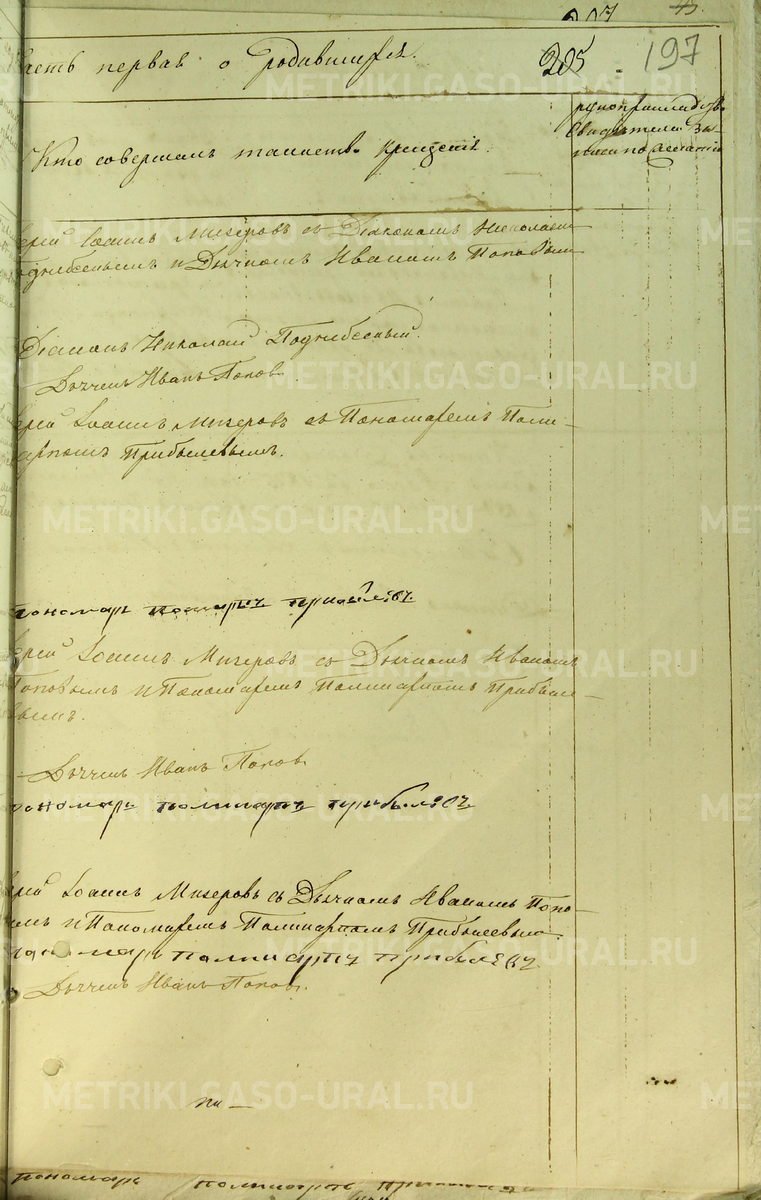 207
асть первая о родившихся.
205
197
рукоприкладство
свидетелей за-
писи по желанію
Кто совершалъ таинство крещенія.
ерей Іоаннъ Мизеровъ съ Діакономъ Николаемъ
Поднебеснымъ и Дьячкомъ Иваномъ Поповымъ
Діаконъ Николай Поднебесный.
Дьячекъ Иванъ Попов
ерей Іоаннъ Мизеровъ съ Пономаремъ Поли-
арпомъ Прибылевымъ.
пономарь поликарпъ прибылевъ
ерей Іоаннъ Мизеровъ съ Дьячкомъ Иваномъ
Поповымъ и Пономаремъ Поликарпомъ Прибыле-
вымъ.
Дьячекъ Иванъ Попов
пономарь поликарпъ прибылевъ
ерей Іоаннъ Мизеровъ съ Дьячкомъ Иваномъ Попо-
ымъ и Пономаремъ Поликарпомъ Прибылевымъ.
пономарь поликарпъ прибылевъ
Дьячекъ Иванъ Попов.
по—
пономарь поликарпъ
METRIKI.GASO-URAL.RU